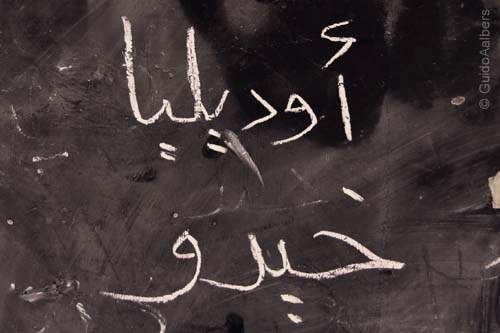 أوديليا
خيدو
© GuidoAalbers